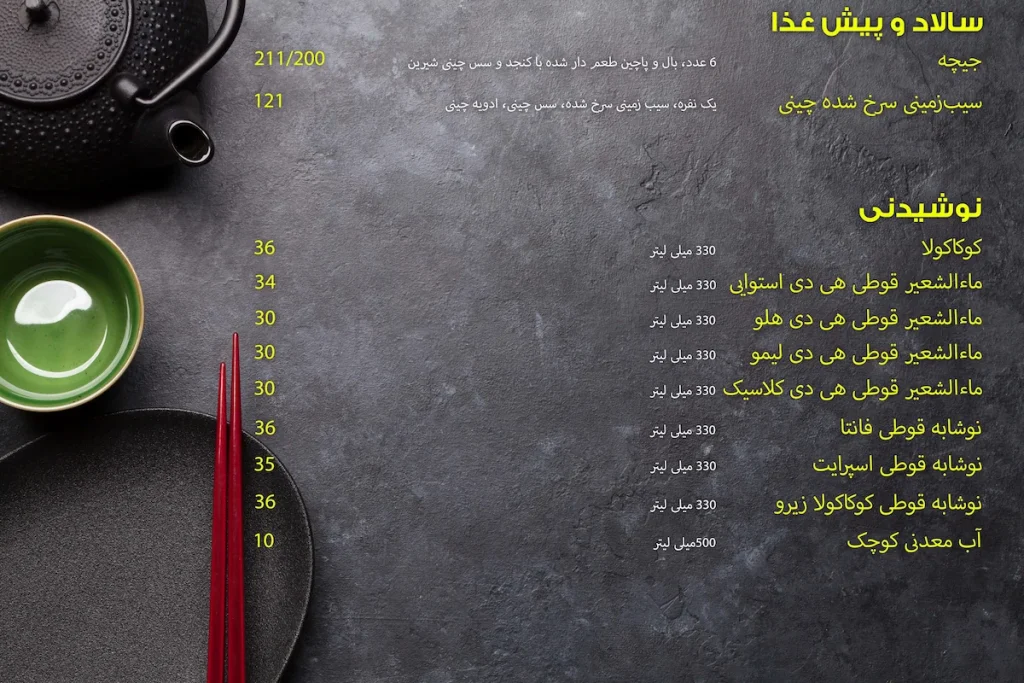 سالاد و پیش غذا
جیچه 6 عدد، بال و پاچین طعم دار شده با کنجد و سس چینی شیرین 211/200
سیب‌زمینی سرخ شده چینی یک نفره، سیب زمینی سرخ شده، سس چینی، ادویه چینی 121
نوشیدنی
کوکاکولا 330 میلی لیتر 36
ماءالشعیر قوطی هی دی استوایی 330 میلی لیتر 34
ماءالشعیر قوطی هی دی هلو 330 میلی لیتر 30
ماءالشعیر قوطی هی دی لیمو 330 میلی لیتر 30
ماءالشعیر قوطی هی دی کلاسیک 330 میلی لیتر 30
نوشابه قوطی فانتا 330 میلی لیتر 36
نوشابه قوطی اسپرایت 330 میلی لیتر 35
نوشابه قوطی کوکاکولا زیرو 330 میلی لیتر 36
آب معدنی کوچک 500میلی لیتر 10